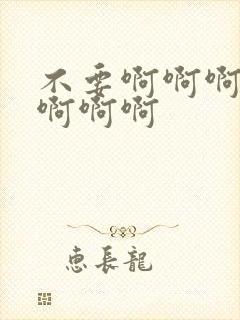 不要啊啊啊
啊啊啊
恵長龍